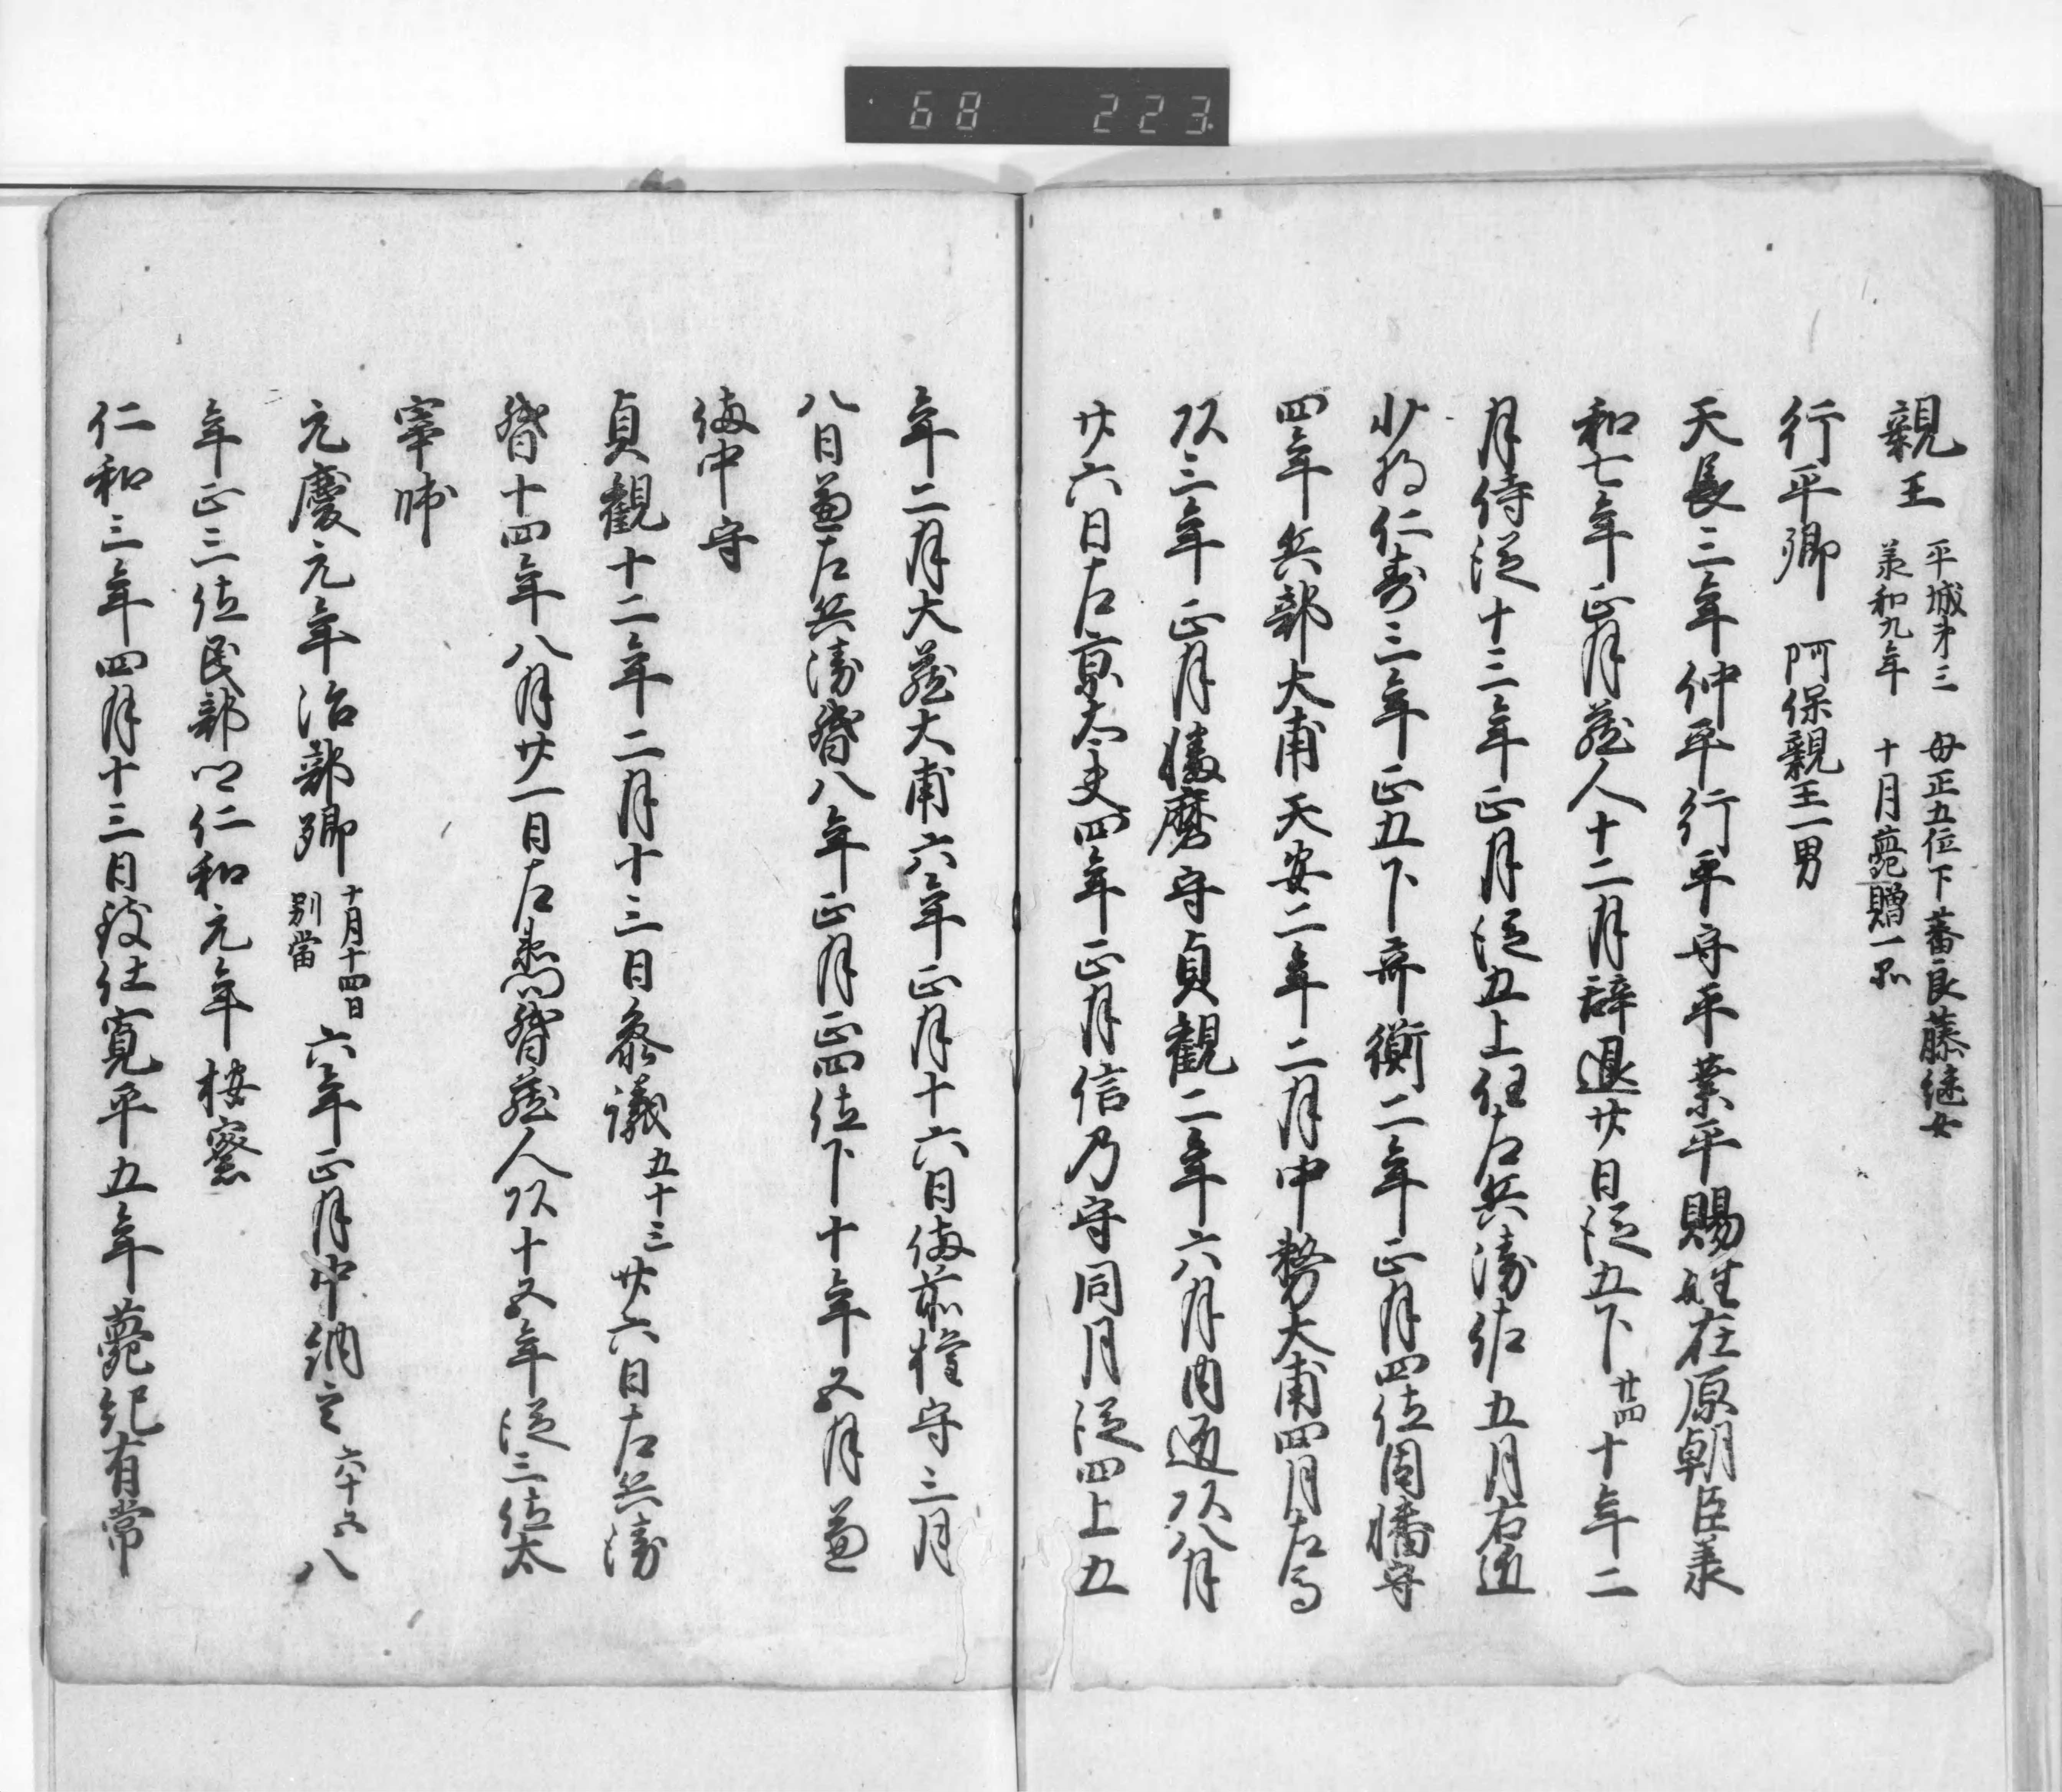 68 223
親王
平城第三 母正五位下蕃良藤継女
羕和九年 十月薨贈一品
行平卿 阿保親王一男
天長三年仲平行平守平業平賜姓在原朝臣羕
和七年正月蔵人十二月辞退廿日従五下廿四十年二
月侍従十三年正月従五上任左兵衛佐五月右近
少将仁寿三年正五下斉衡二年正月四位因幡守
四年兵部大甫天安二年二月中務大甫四月左馬
頭三年正月播磨守貞観二年六月内匠頭八月
廿六日左京大夫四年正月信乃守同月従四上五
年二月大蔵大甫六年正月十六日備前権守三月
八日兼左兵衛督八年正月正四位下十年五月兼
備中守
貞観十二年二月十三日参議五十三廿六日左兵衛
督十四年八月廿一日左衛門督蔵人頭十五年従三位太
宰帥
元慶元年治部卿十月十四日別當六年正月中納言六十五八
年正三位民部卿仁和元年按察
仁和三年四月十三日致仕寛平五年薨紀有常